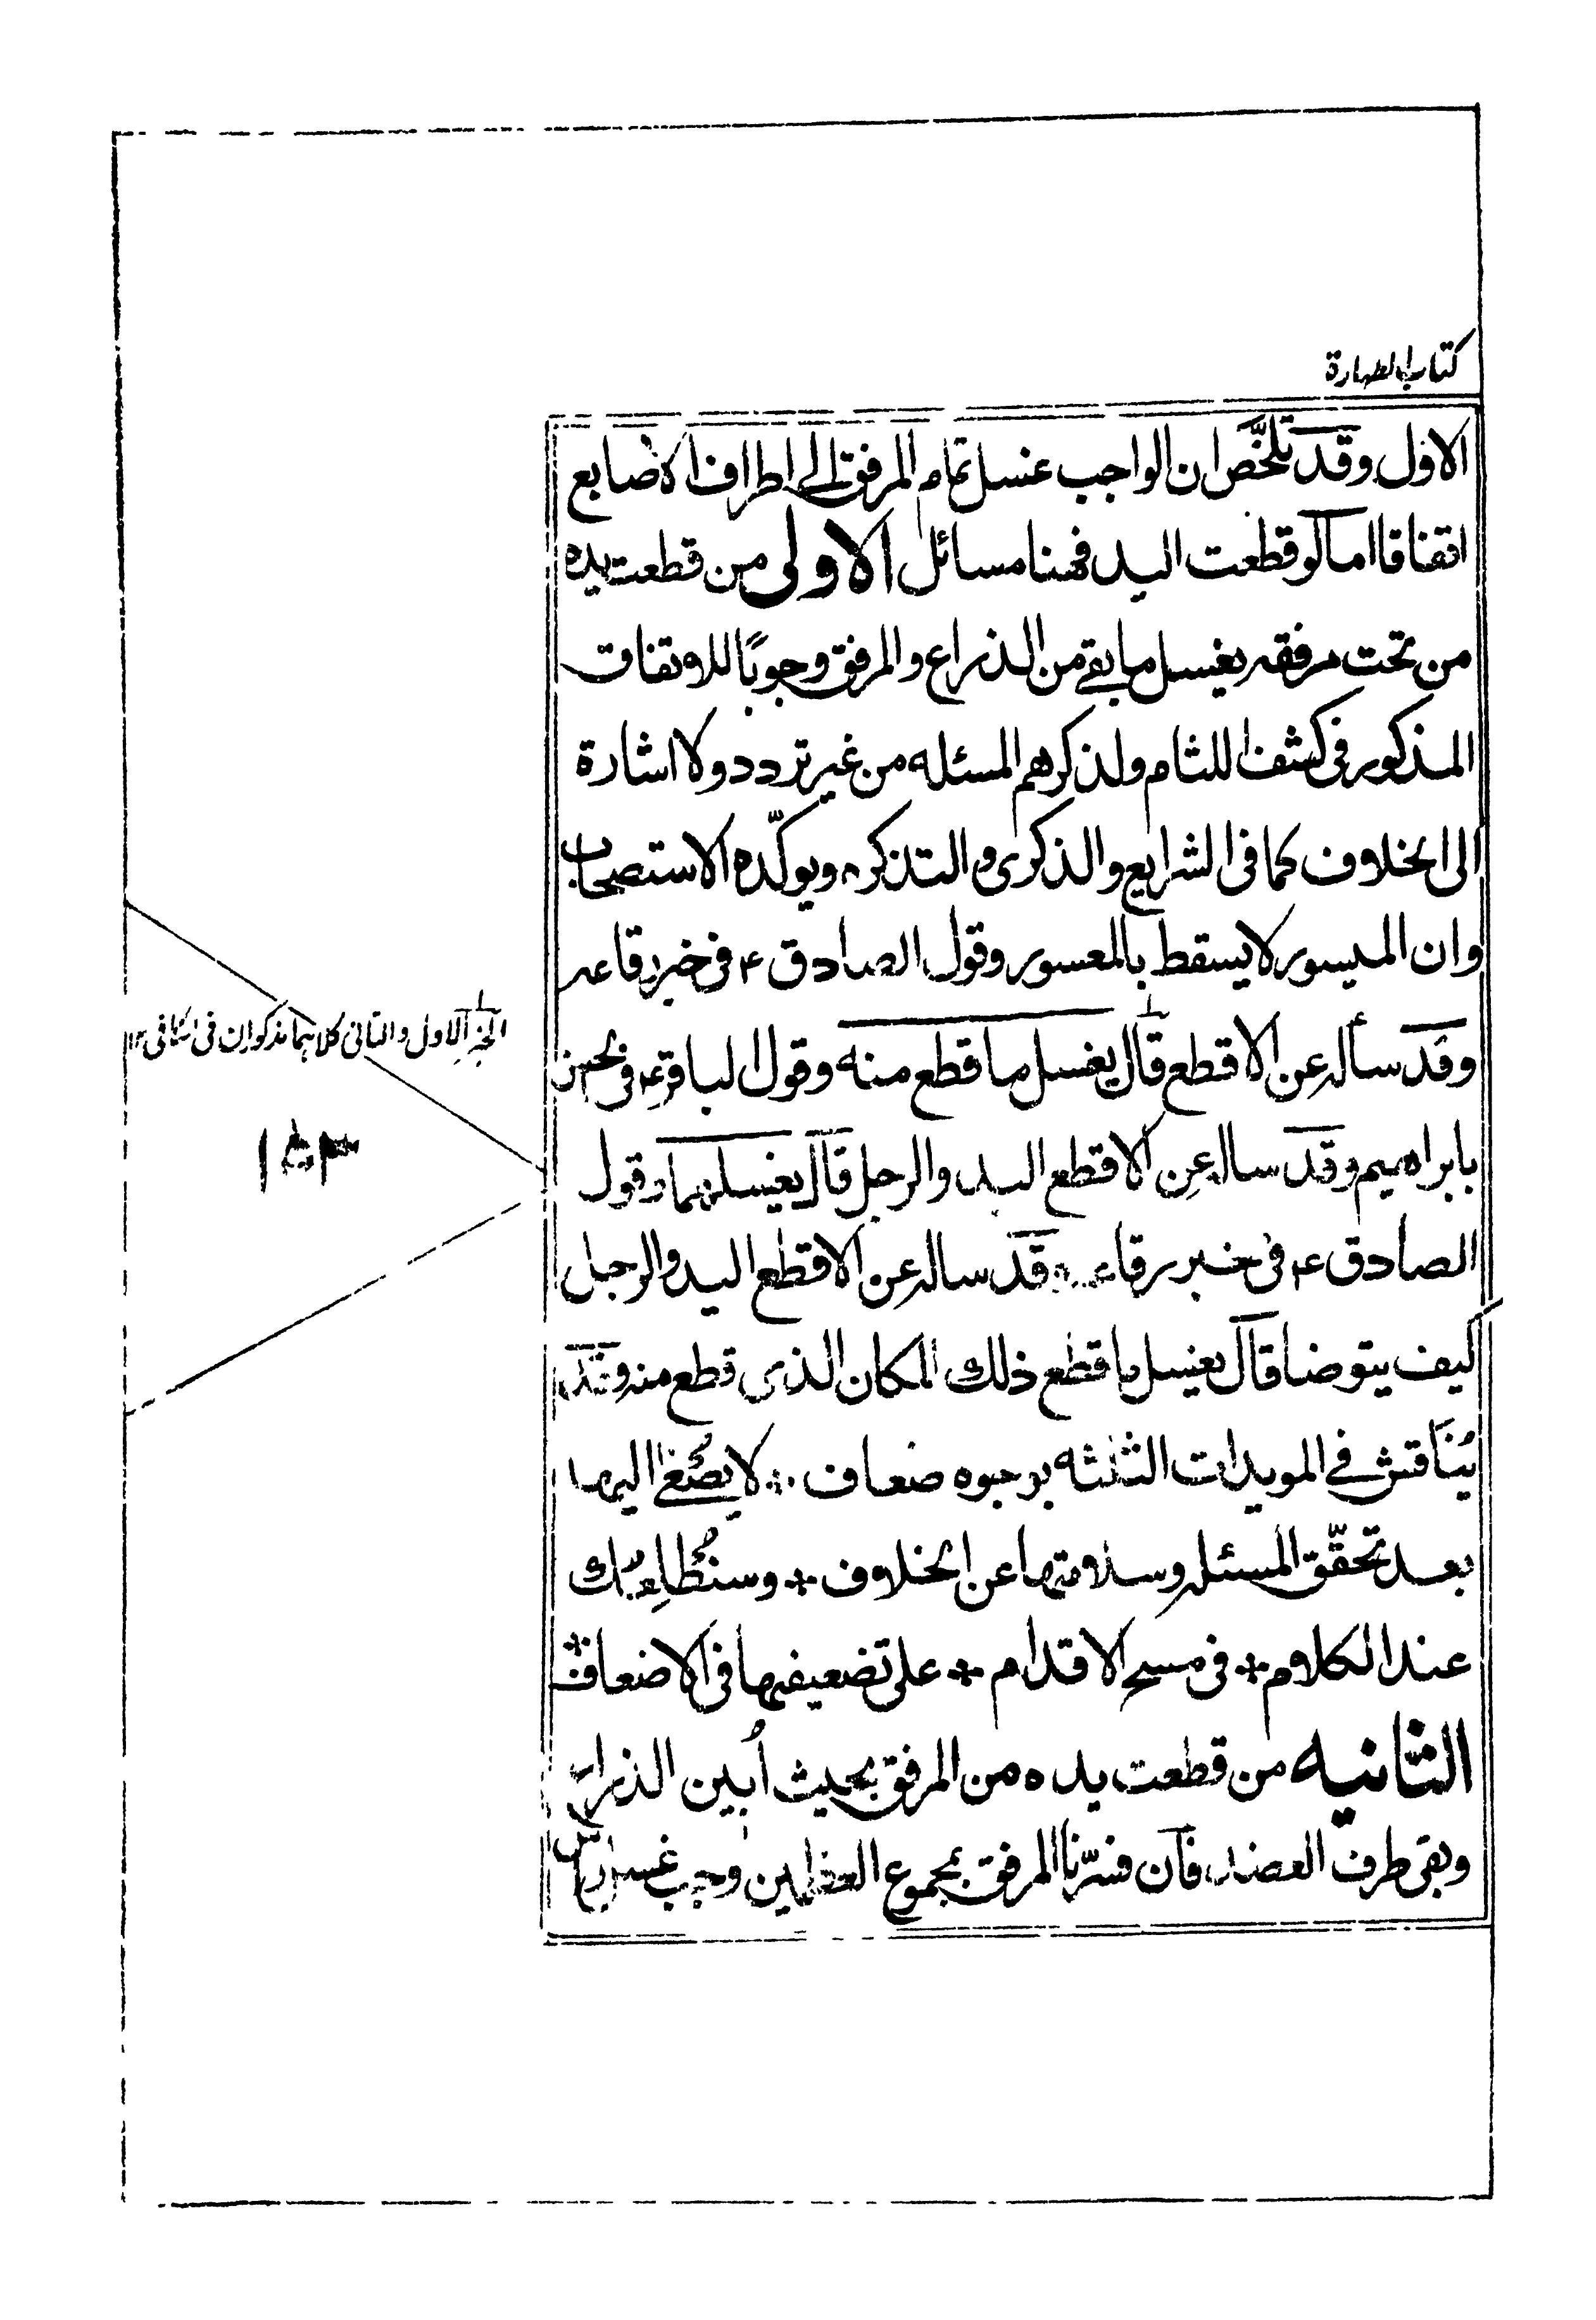 كتاب الطهارة
الاول وقد تلخّص ان الواجب غسل تمام المرفق الى اطراف الاصابع
اتفاقا اما لو قطعت اليد فههنا مسائل الاولى من قطعت يده
من تحت مرفقه يغسل ما بقے من الذراع والمرفق وجوبًا للاتفاق
المذكور فى كشف اللثام ولذكرهم المسئله من غير تردد ولا اشارة
الى الخلاف كما فى الشرايع والذكرى والتذكره ويوكّده الاستصحاب
وان الميسور لا يسقط بالمعسور وقول الصادق ع فى خبر رفاعه
وقد سأله عن الاقطع قال يغسل ما قطع منه وقول الباقر ع فى الحسن
بابراهيم وقد ساله عن الاقطع اليد والرجل قال يغسلهما وقول
الصادق ع فى خبر رفاعه قد ساله عن الاقطع اليد والرجل
كيف يتوضا قال يغسل ما قطع ذلك المكان الذى قطع منه وقد
يُناقش فے المويدات الثلثه بوجوه ضعاف لا يصُغے اليها
بعد تحقّق المسئله وسلامتها عن الخلاف * وسنُطلِعك
عند الكلام * فى مسح الاقدام * على تضعيفها فى الاضعاف *
الثانيه من قطعت يده من المرفق بحيث أُبين الذراع
وبقى طرف العضد فان فسّرنا المرفق بمجموع العظمين وجب غسل راس
الخبر الاول والثانى كلاهما مذكوران فى الكافى ١٢